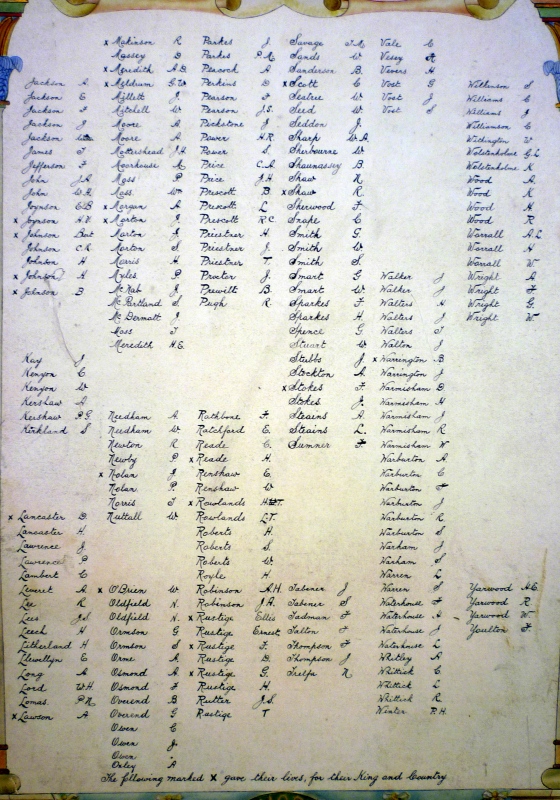 Jackson A
Jackson E
Jackson F
Jackson J
Jackson
James T
Jefferson F
John J.A
John W.R
Joynson E.B
x Joynson H.V
x Johnson Bert
Johnson C.R.
Johnson H
x Johnson A
x Johnson B
Kay J
Kenyon E
Kenyon W
Kershaw A
Kershaw P.G.
Kirkland S
x Lancaster D
Lancaster H.
Lawrence J
Lawrence P.
Lambert E
Levert A
Lee R
Lees J.S
Leech H
Litherland H
Llewellyn E
Long A
Lord W.H.
Lomas P.N.
x Lawson A
x Makinson R
Massey D
x Meredith A.D.
x Meldrum G.W
Millett J
Mitchell W
Moore A
Moore A
Mottershead J.H
Moorhouse M
Moss P
Moss W
x Morgan A
x Morton J
Morton J
Morton S
Morris H
Myles P
McNab J
McPartland S
McDermott J
Moss T
Meredith H.E.
Needham A
Needham W
Newton R
Newby P
x Nolan J
Nolan P.
Norris T
Nuttall W
x O'Brien W
Oldfield N.
Oldfield N.
Ormson G
Ormson S
Orme A
Osmond A
Osmond F
Overend B
Overend G
Owen E
Owen J.
Owen
Oxley A
Parkes J.
Parkes P.M.
Peacock A
Perkins D
Pearson F
Pearson J.S.
Pickstone J
Power H.R
Power S.
Price C.A.
Price J.H
Prescott B
Prescott L
Prescott R.C.
Priestner H.
Priestner J.
Priestner T.
Procter J.
Prewitt B.
Pugh R.
Rathbone F.
Ratchford E.
Reade E.
x Reade H.
Renshaw E.
Renshaw W
x Rowlands
Rowlands L.T.
Roberts H.
Roberts S.
Roberts W.
Royle H
Robinson A.H.
Robinson J.H.
x Rustige Ellis
Rustige Ernest
x Rustige F.
Rustige D.
x Rustige G.
Rustige H.
Rutter J.S.
Rustige T
Savage T.M.
Sands W
Sanderson B.
x Scott E
Seatree W
Seed W
Seddon J.
Sharp W.A.
Sherbourne W.
Shaunassey B
Shaw N.
x Shaw R.
Sherwood F
Snape E
Smith G
Smith W
Smith S.
Smart G
Smart W
Sparkes F
Sparkes H.
Spence G
Stuart W
Stubbs J
Stockton A.
x Stokes F.
Stokes J.
Steains A.
Steains L.
Sumner F
Taberer J
Taberer S
Tadman F
Talton F
Thompson F
Thompson J
Trelfa N.
Vale E
Vesey A
Vevers H
Vost G
Vost J
Vost S
Walker J
Walker J
Walters H
Walters J
Walters T
Walton J
x Warrington B
Warrington J
Warmisham D
Warmisham H
Warmisham J
Warmisham R
Warmisham W
Warburton A
Warburton E
Warburton F
Warburton J
Warburton R
Warburton S
Warham J
Warham S.
Warren L
Warren S
Waterhouse F
Waterhouse H
Waterhouse J
Waterhouse L
Whitley A
Whittick E
Whittick L
Whittick R
Winter P.H.
Wilkinson S
Williams E
Williams J
Williamson E
Withington W
Wolstenholme G.L
Wolstenholme K
Wood A
Wood K
Wood H
Wood R
Worrall A.L
Worrall H
Worrall W
Wright A
Wright F
Wright G
Wright W
Yarwood H.E.
Yarwood R
Yarwood W.
Youlton F.
The following marked X gave their lives, for their King and Country